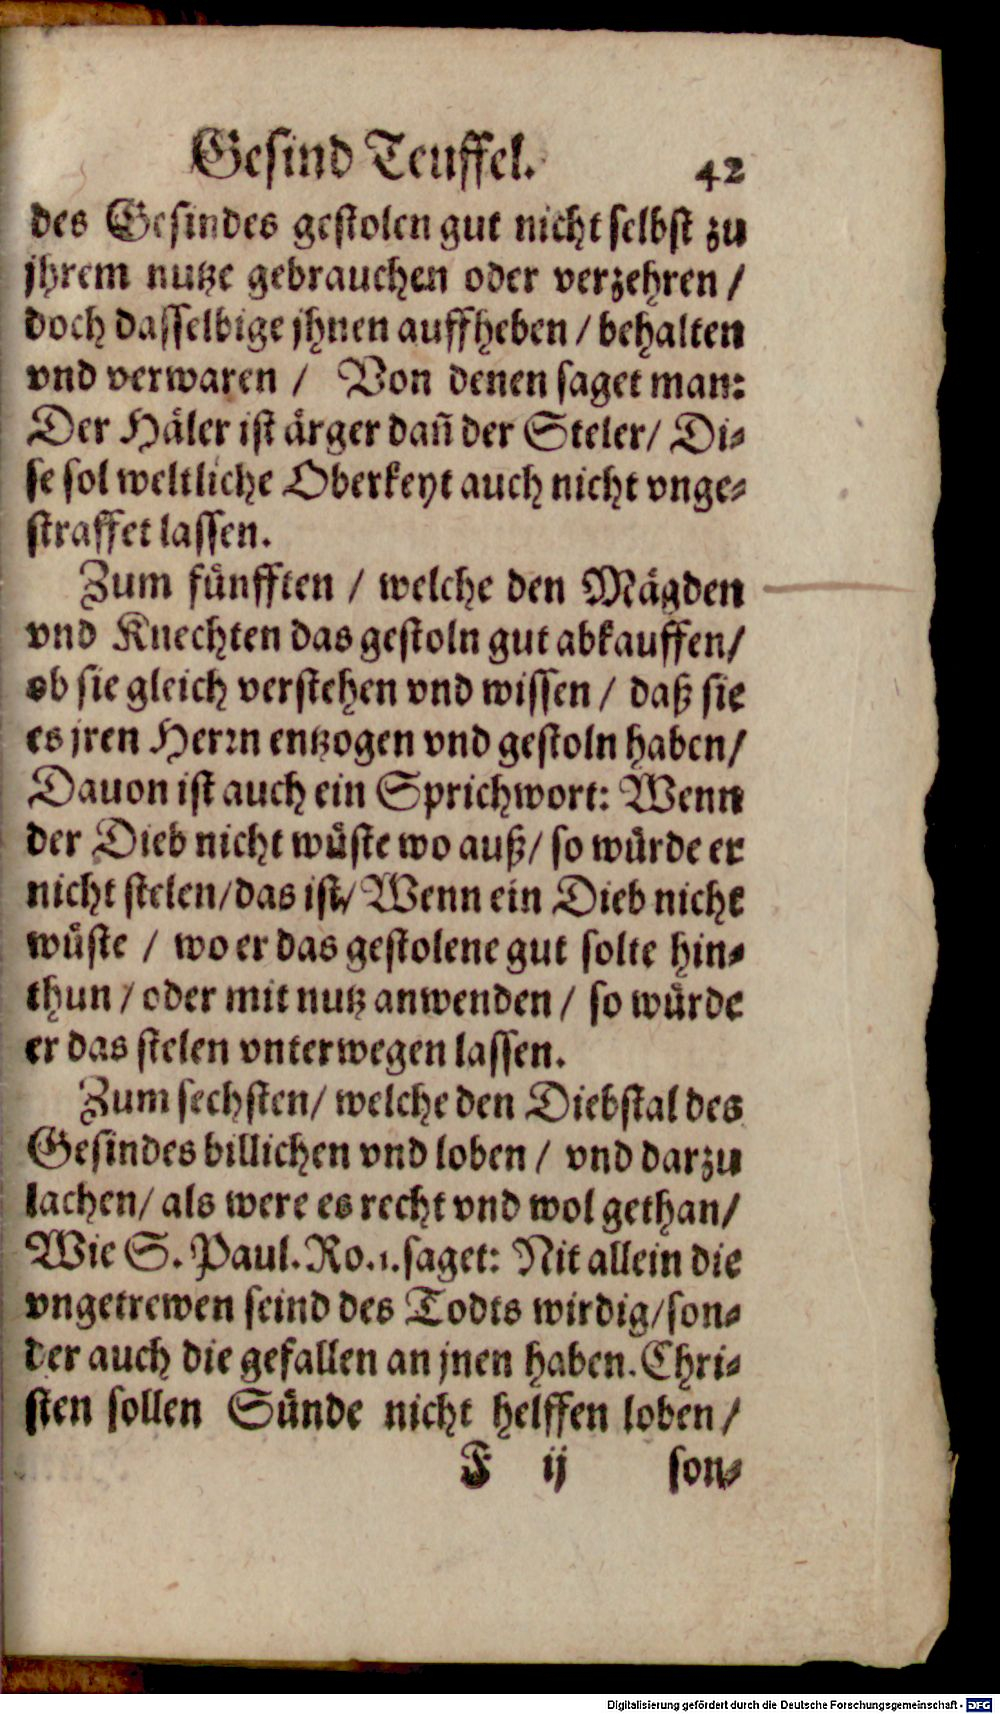 Gesind Teuffel. 42
des Gesindes gestolen gut nicht selbst zu
jhrem nutze gebrauchen oder verzehren /
doch dasselbige jhnen auffheben / behalten
vnd verwaren / Von denen saget man:
Der Häler ist ärger dañ der Steler / Di-
se sol weltliche Oberkeyt auch nicht vnge-
straffet lassen.
Zum fünfften / welche den Mägden
vnd Knechten das gestoln gut abkauffen /
ob sie gleich verstehen vnd wissen / daß sie
es jren Herrn entzogen vnd gestoln haben /
Dauon ist auch ein Sprichwort: Wenn
der Dieb nicht wüste wo auß / so würde er
nicht stelen / das ist / Wenn ein Dieb nicht
wüste / wo er das gestolene gut solte hin-
thun / oder mit nutz anwenden / so würde
er das stelen vnterwegen lassen.
Zum sechsten / welche den Diebstal des
Gesindes billichen vnd loben / vnd darzu
lachen / als were es recht vnd wol gethan /
Wie S. Paul. Ro. 1. saget: Nit allein die
vngetrewen seind des Todts wirdig / son-
der auch die gefallen an jnen haben. Chri-
sten sollen Sünde nicht helffen loben /
F ij son-
Digitalisierung gefördert durch die Deutsche Forschungsgemeinschaft - DFG